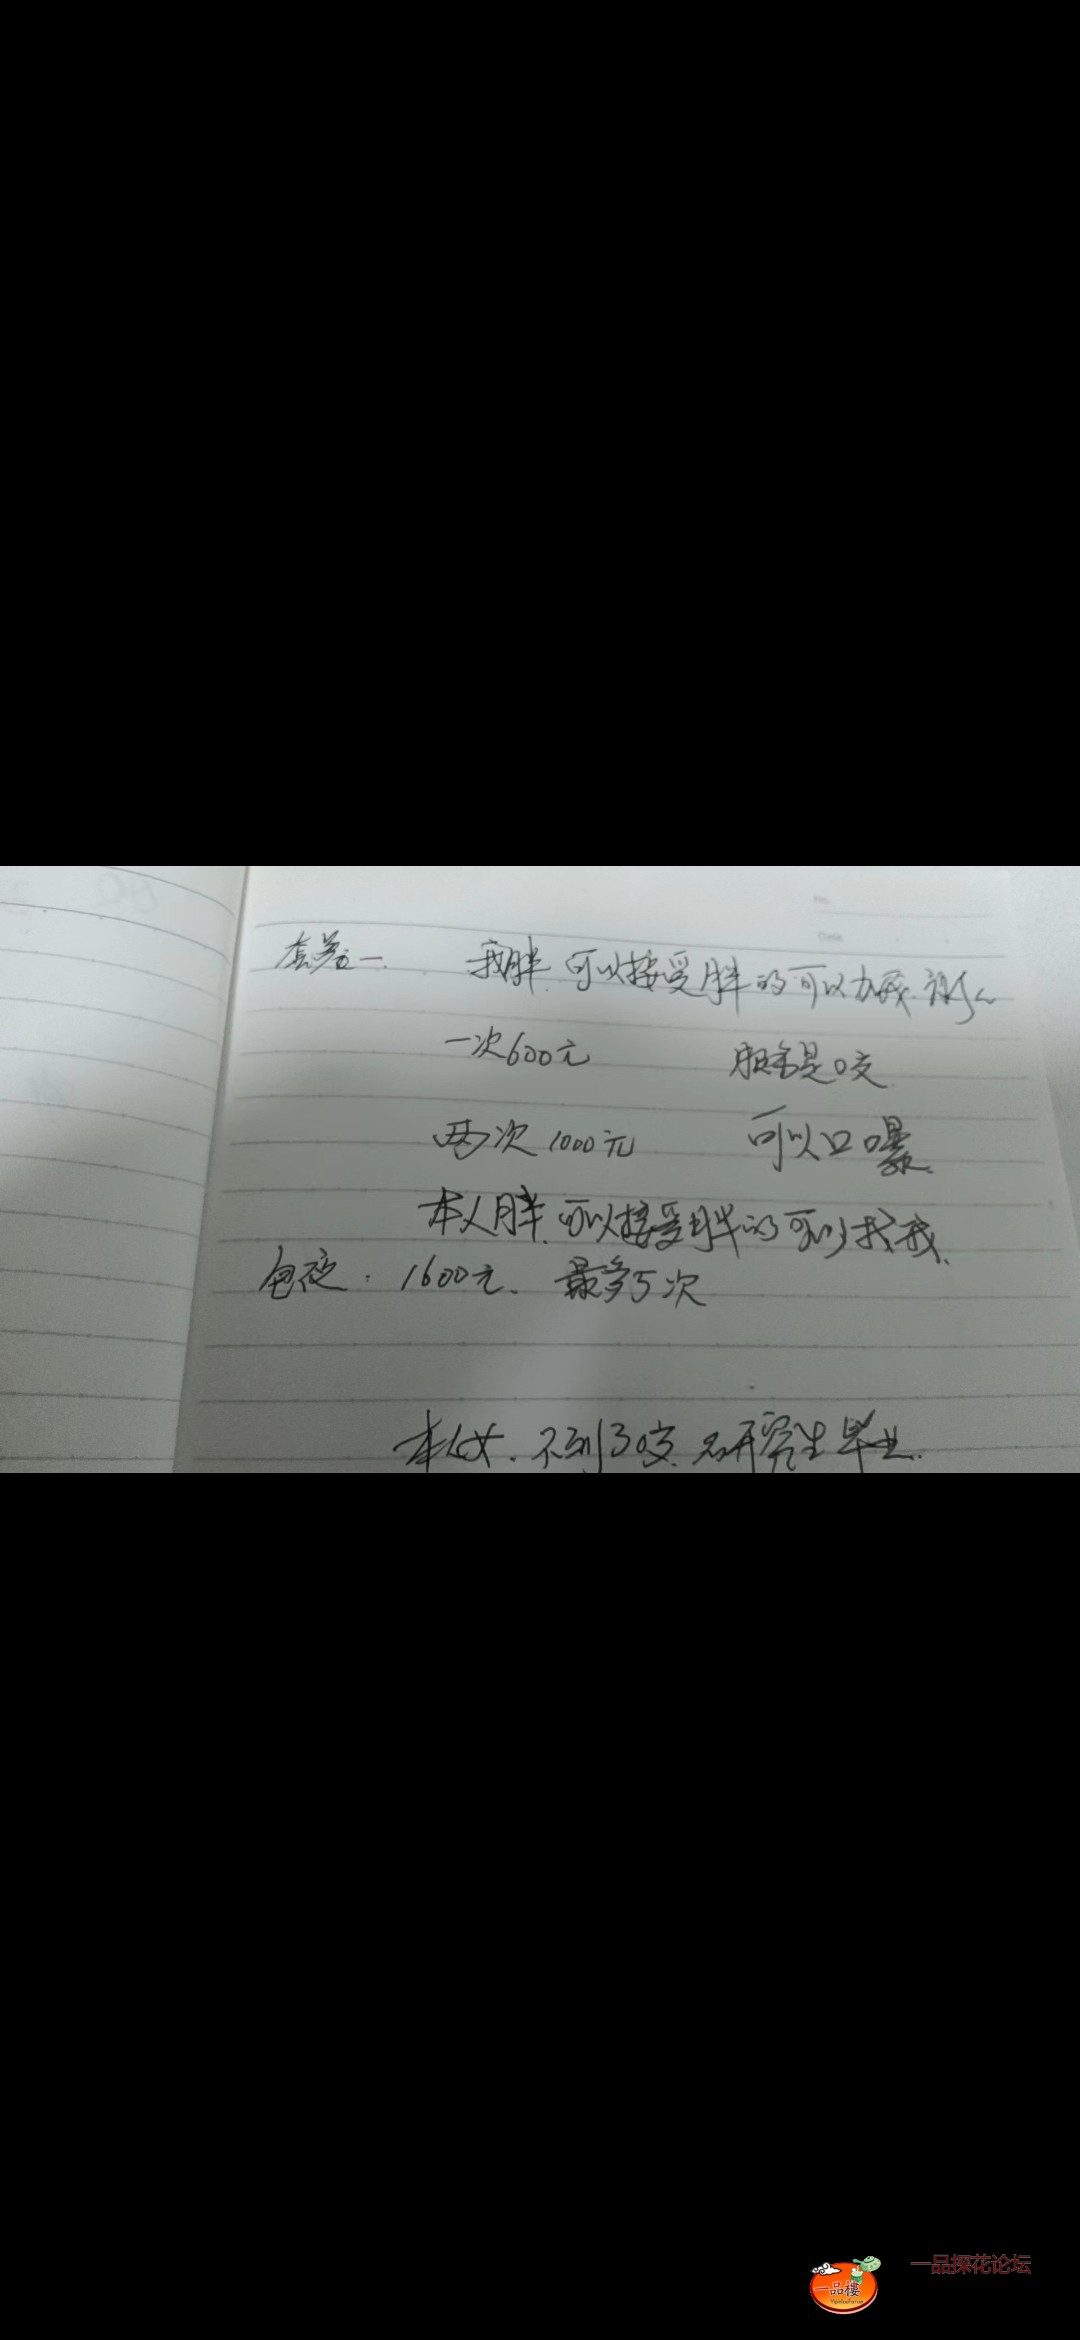 套餐一. 我胖.可以接受胖的可以加我.谢谢
一次600元
两次1000元 可以口嗨
本人胖.可以接受胖的可以找我.
包夜:1600元. 最多5次
本人女.不到30岁.研究生毕业.
一品楼
一品探花论坛